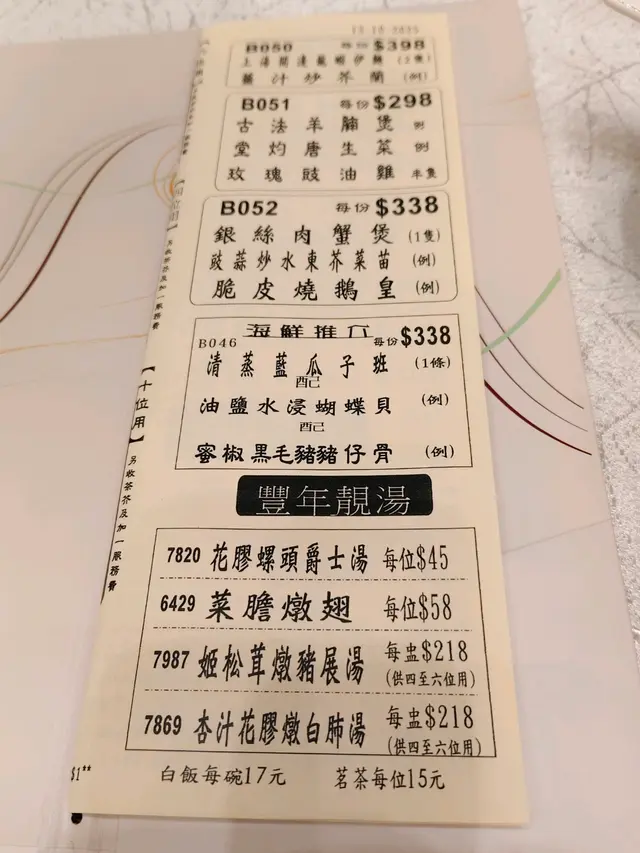 B050 每份$398
薑汁炒芥蘭 (例)
B051 每份$298
古法羊腩煲 例
堂灼唐生菜 例
玫瑰豉油雞 半隻
B052 每份$338
銀絲肉蟹煲 (1隻)
豉蒜炒水東芥菜苗 (例)
脆皮燒鵝皇 (例)
海鮮推介
B046 每份$338
清蒸藍瓜子班 (1條)
配
油鹽水浸蝴蝶貝 (例)
配
蜜椒黑毛豬豬仔骨 (例)
豐年靚湯
7820 花膠螺頭爵士湯 每位$45
6429 菜膽燉翅 每位$58
7987 姬松茸燉豬展湯 每盅$218
(供四至六位用)
7869 杏汁花膠燉白肺湯 每盅$218
(供四至六位用)
白飯每碗17元 茗茶每位15元
【十位用】另收茶芥及加一服務費
$1**